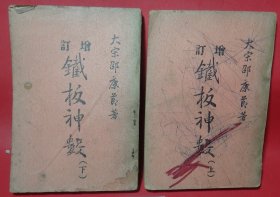 大宗邵康節著
增訂
鐵板神數(下)
大宗邵康節著
增訂
鐵板神數(上)